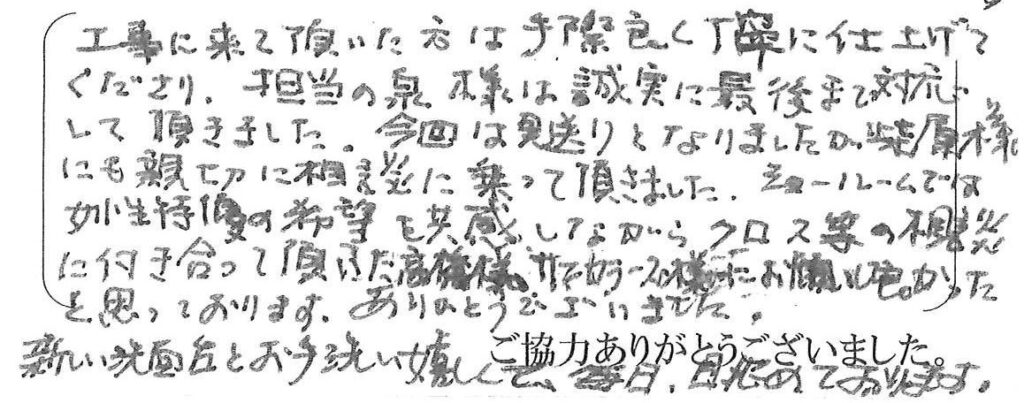 工事に来て頂いた方は手際良く丁寧に仕上げて
くださり、担当の泉様は誠実に最後まで対応
して頂きました。今回は見送りとなりましたが柴原様
にも親切に相談に乗って頂きました。ショールームでは
女性特有の希望を共感しながらクロス等の相談
に付き合って頂きた高橋様、 にお願いして良かった
と思っております。ありがとうございました。
ご協力ありがとうございました。
新しい洗面台とお手洗い嬉しくて、毎日、眺めております。